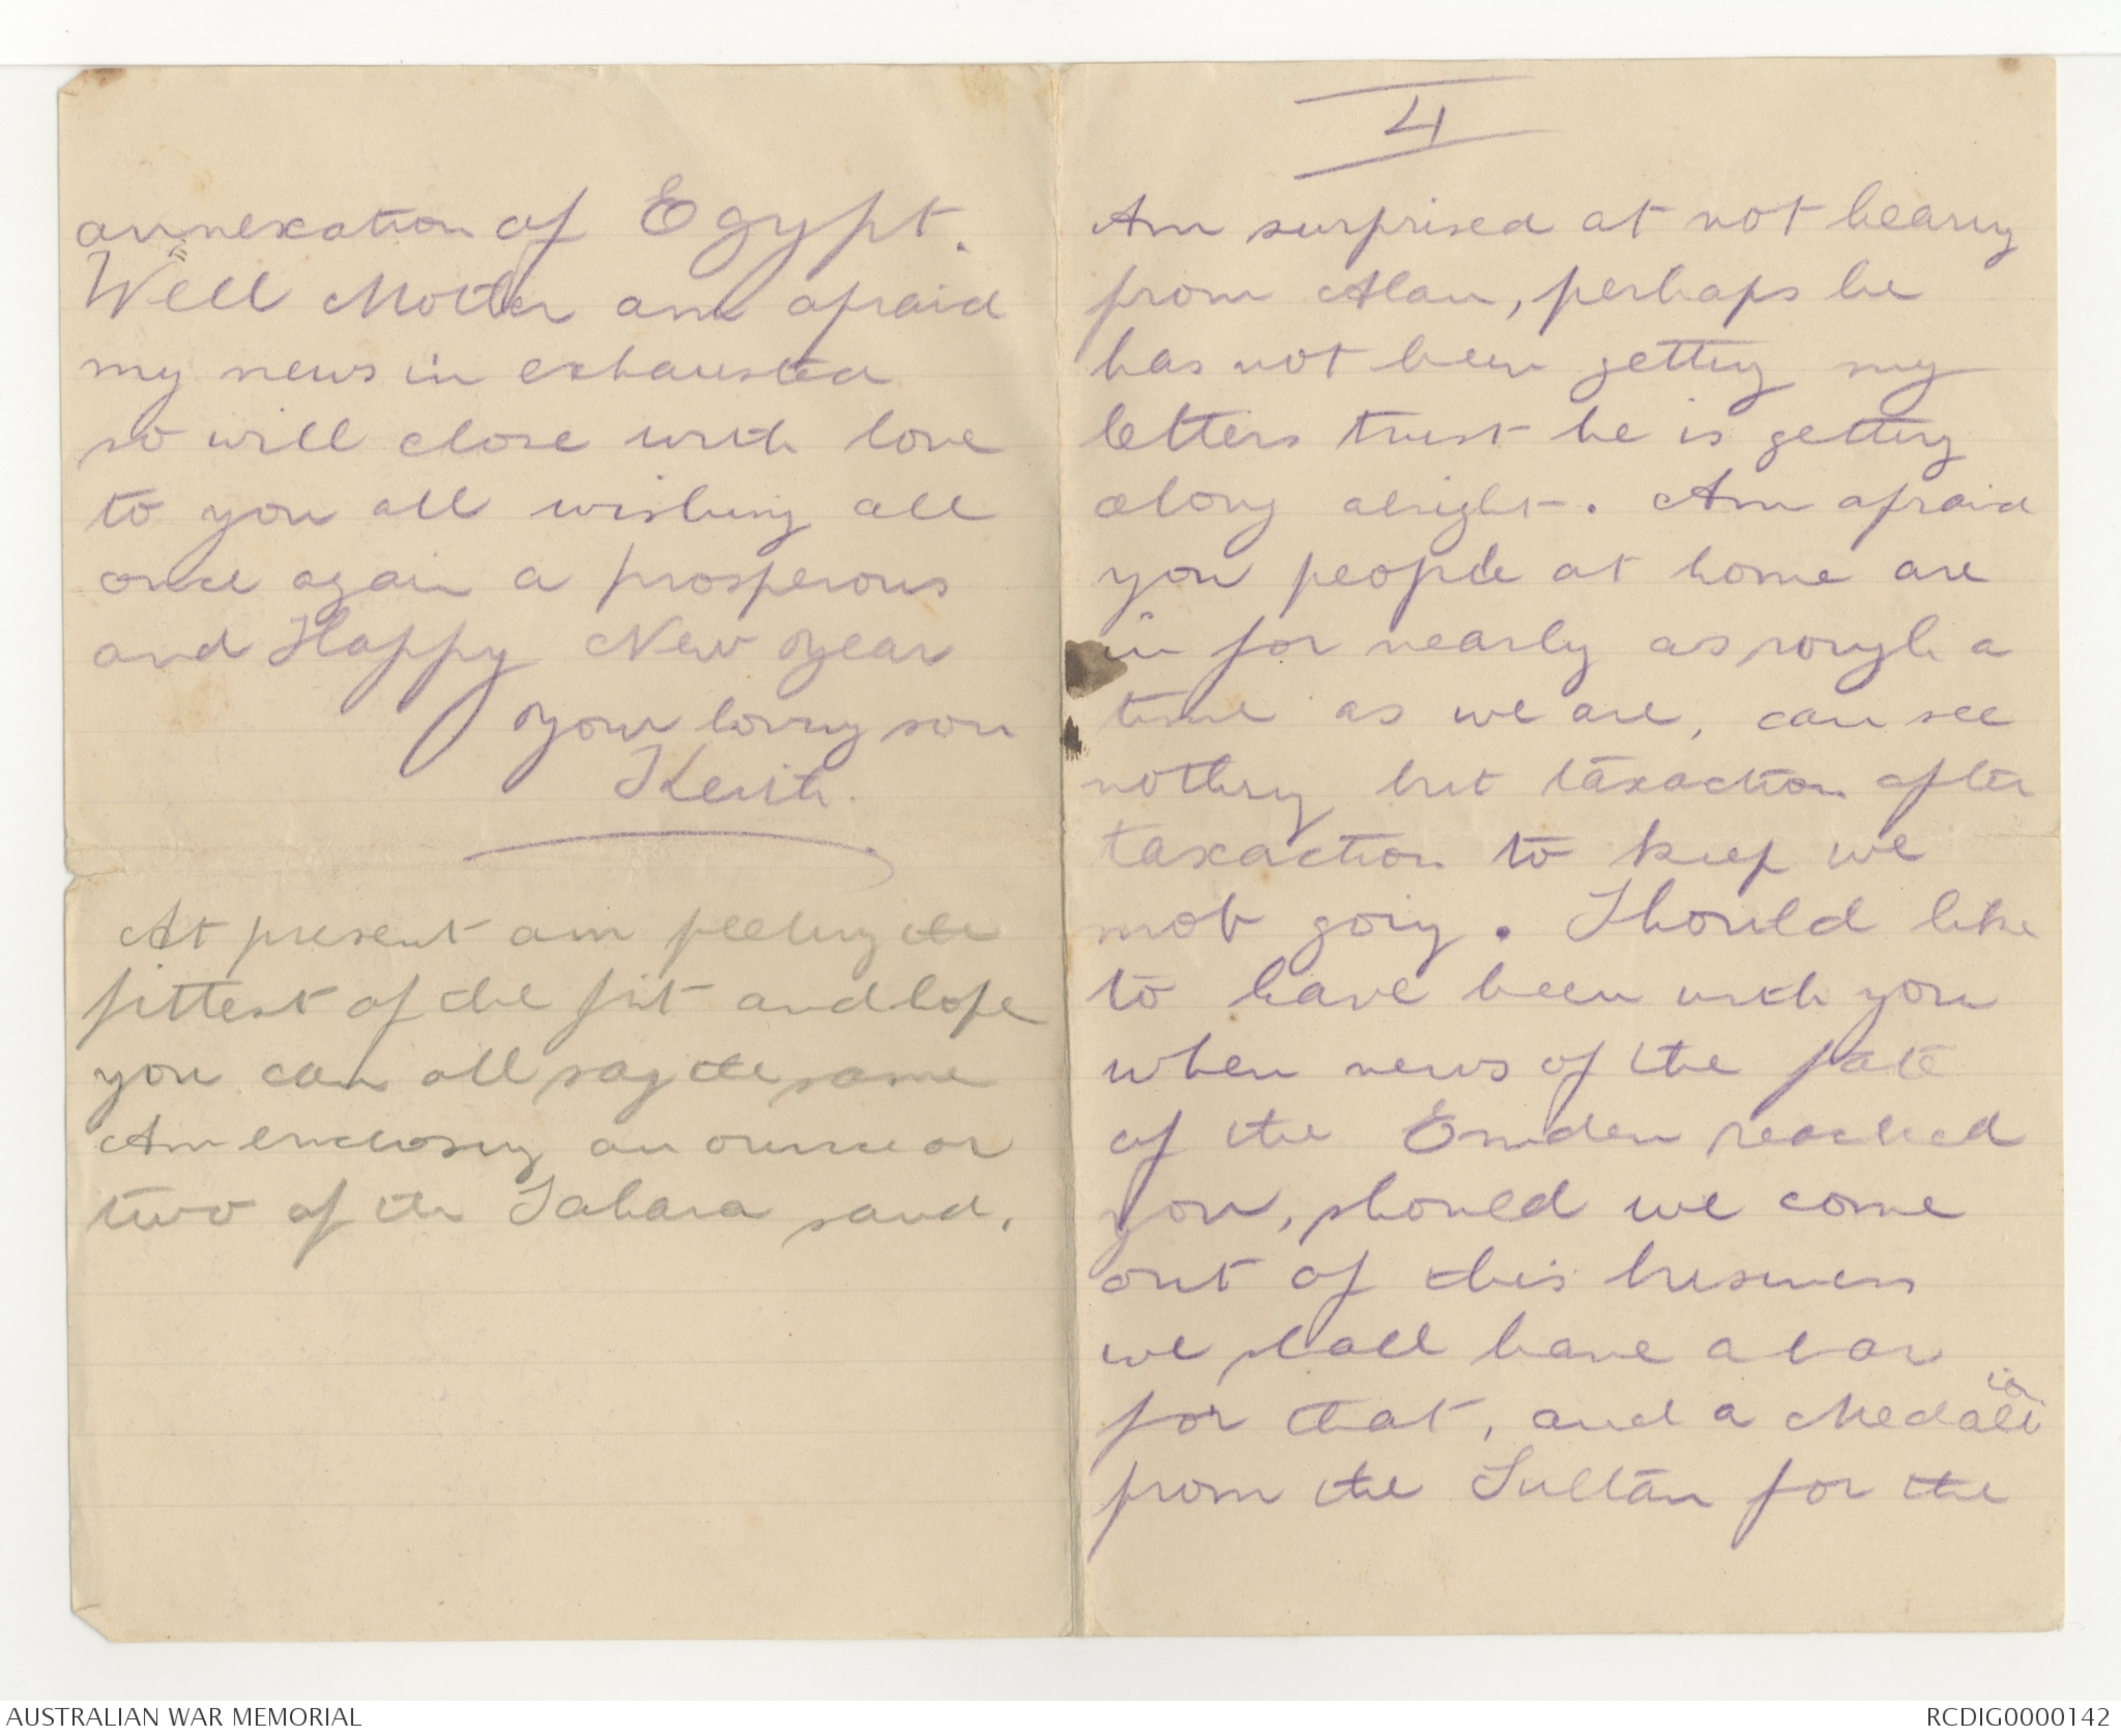 4
Am surprised at not hearing
from Alan, perhaps he
has not been getting my
letters trust he is getting
along alright. Am afraid
you people at home are
in for nearly as rough a
time as we are, can see
nothing but taxaction after
taxaction to keep we
mob going. Should like
to have been with you
when news of the fate
of the Emden reached
you, should we come
out of this business
we shall have a bar
for that, and a Medal
from the Sultan for the
annexation of Egypt.
Well Mother am afraid
my news in exhausted
so will close with love
to you all wishing all
once again a prosperous
and Happy New Year
Your loving son
Keith.
At present am feeling the
fittest of the fit and hope
you can all say the same
Am enclosing an ounce or
two of the Sahara sand.
AUSTRALIAN WAR MEMORIAL
RCDIG0000142